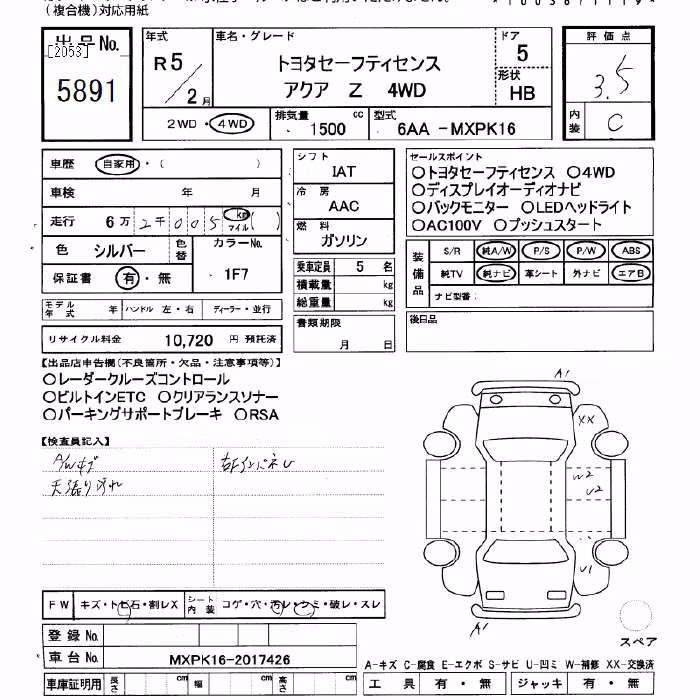 (複合機)対応用紙
出品No.
[2053]
5891
年式
R5/2月
車名・グレード
トヨタセーフティセンス
アクア Z 4WD
ドア
5
形状
HB
評価点
3.5
内装
C
2WD・4WD
排気量 1500 cc
型式 6AA -MXPK16
車歴 自家用・( )
車検 年 月
走行 6万2千005 km マイル( )
色 シルバー 色替 カラーNo. 1F7
保証書 有・無
モデル年式 年 ハンドル 左・右 ディーラー・並行
リサイクル料金 10,720 円 預託済
シフト
IAT
冷房
AAC
燃料
ガソリン
乗車定員 5 名
積載量 kg
総重量 kg
書類期限
月 日
セールスポイント
○トヨタセーフティセンス ○4WD
○ディスプレイオーディオナビ
○バックモニター ○LEDヘッドライト
○AC100V ○プッシュスタート
装備品
S/R 純A/W P/S P/W ABS
純TV 純ナビ 革シート 外ナビ エアB
ナビ型番:
後日品
【出品店申告欄(不良箇所・欠品・注意事項等)】
○レーダークルーズコントロール
○ビルトインETC ○クリアランスソナー
○パーキングサポートブレーキ ○RSA
【検査員記入】
A/Wキズ
天張り汚れ
右FインパネU
A1
XX
W2
U2
U1
A1
FW キズ・トビ石・割レX
シート内装 コゲ・穴・汚レ・シミ・破レ・スレ
登録No.
車台No. MXPK16-2017426
車庫証明用 長さ cm 幅 cm 高さ cm
スペア
A-キズ C-腐食 E-エクボ S-サビ U-凹ミ W-補修 XX-交換済
工具 有・無 ジャッキ 有・無